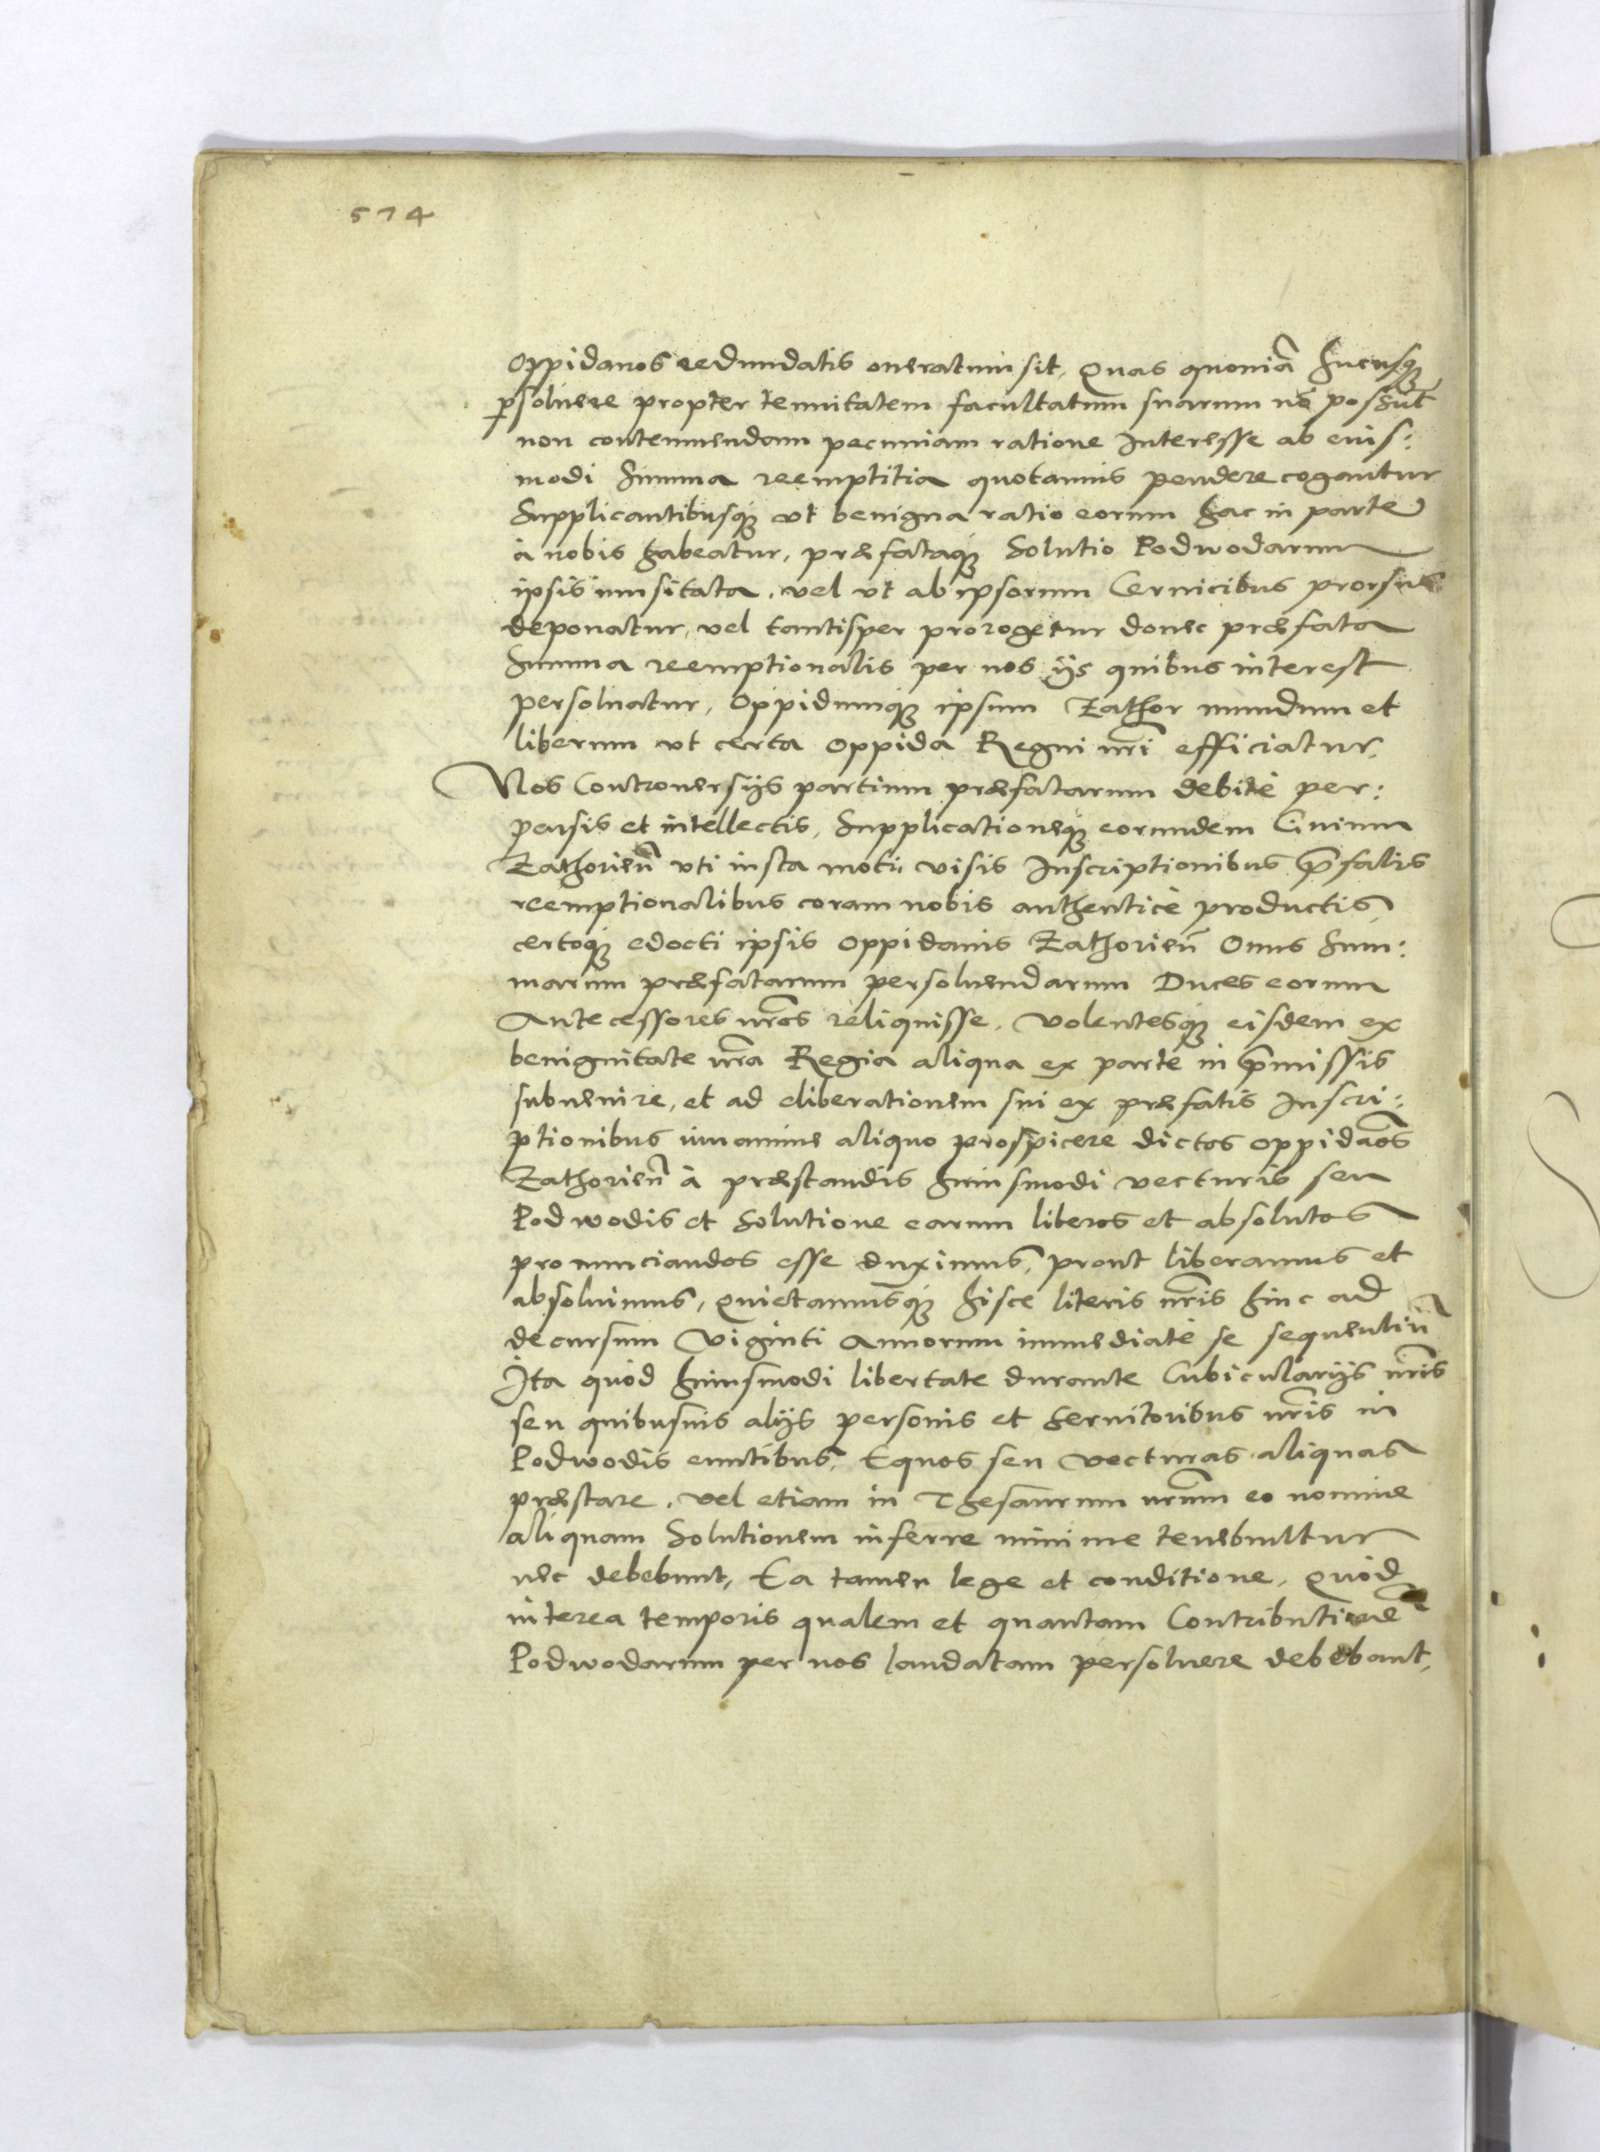 574
Oppidanos redundatis oneratum sit, Quas quoniã hucusq₃
ꝑsoluere propter tenuitatem facultatum suarum nõ possũt
non contemnendam pecuniam ratione Interesse ab eius:
modi Summa reemptitia quotannis pendere cogantur
Supplicantibusq₃ vt benigna ratio eorum hac in parte
à nobis habeatur, præfataq₃ Solutio Podwodarum
ipsis inusitata, vel vt ab ipsorum Ceruicibus prorsus
deponatur, vel tantisper prorogetur donec præfata
Summa reemptionalis per nos ijs quibus interest
persoluatur, Oppidumq₃ ipsum Zathor mundum et
liberum vt certa Oppida Regni nr̃i efficiatur,
Nos Controuersijs partium præfatarum debitè per:
pensis et intellectis, Supplicationeq₃ eorundem Ciuium
Zathorieñ vti iusta moti visis Inscriptionibus p̃fatis
reemptionalibus coram nobis authenticè productis,
certoq₃ edocti ipsis Oppidanis Zathorieñ Onus Sum:
marum præfatarum persoluendarum Duces eorum
Antecessores nr̃os reliquisse, Volentesq₃ eisdem ex
benignitate nr̃a Regia aliqua ex parte in p̃missis
subuenire, et ad eliberationem sui ex præfatis Inscri:
ptionibus iuuamine aliquo prospicere dictos oppidãos
Zathorieñ à præstandis huiusmodi vecturis seu
Podwodis et Solutione earum liberos et absolutos
pronunciandos esse duximus, prout liberamus et
absoluimus, Quietamusq₃ hisce literis nr̃is hinc ad
decursum Viginti Annorum immediatè se sequentiũ
Ita quòd huiusmodi libertate durante Cubicularijs nr̃is
seu quibusuis alijs personis et Seruitoribus nr̃is in
Podwodis euntibus, Equos seu vecturas aliquas
præstare, vel etiam in Thesaurum nr̃um eo nomine
aliquam Solutionem inferre minime tenebuntur
nec debebunt, Ea tamen lege et conditione, Quòd
interea temporis qualem et quantam Contributionẽ
Podwodarum per nos laudatam persoluere debebant,